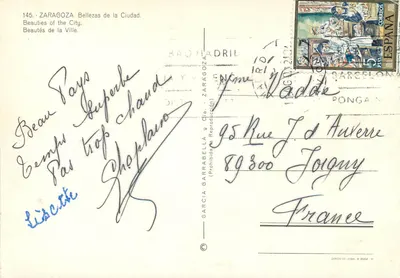 145. - ZARAGOZA Bellezas de la Ciudad.
Beauties of the City.
Beautés de la Ville.
Beau Pays
Temps superbe
Pas trop chaud
GARCIA GARRABELLA y Cía. ZARAGOZA
(Prohibida la Reproducción)
ESPAÑA
MADRID
BARCELONA
PONGA
Mme
95 Rue J. d'Auxerre
89300 Joigny
France